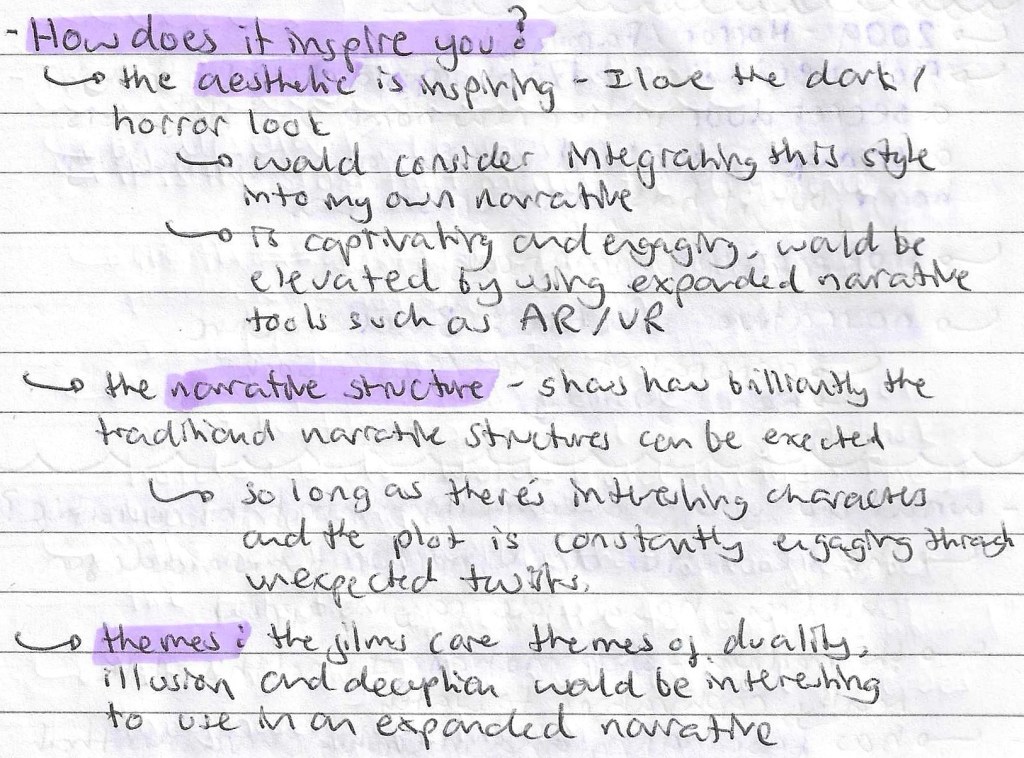 - How does it inspire you?
↳ the aesthetic is inspiring - I love the dark /
horror look
↳ would consider integrating this style
into my own narrative
↳ is captivating and engaging, would be
elevated by using expanded narrative
tools such as AR/VR
↳ the narrative structure - shows how brilliantly the
traditional narrative structures can be exected
↳ so long as there's interesting characters
and the plot is constantly engaging through
unexpected twists.
↳ themes: the films core themes of duality,
illusion and deception would be interesting
to use in an expanded narrative